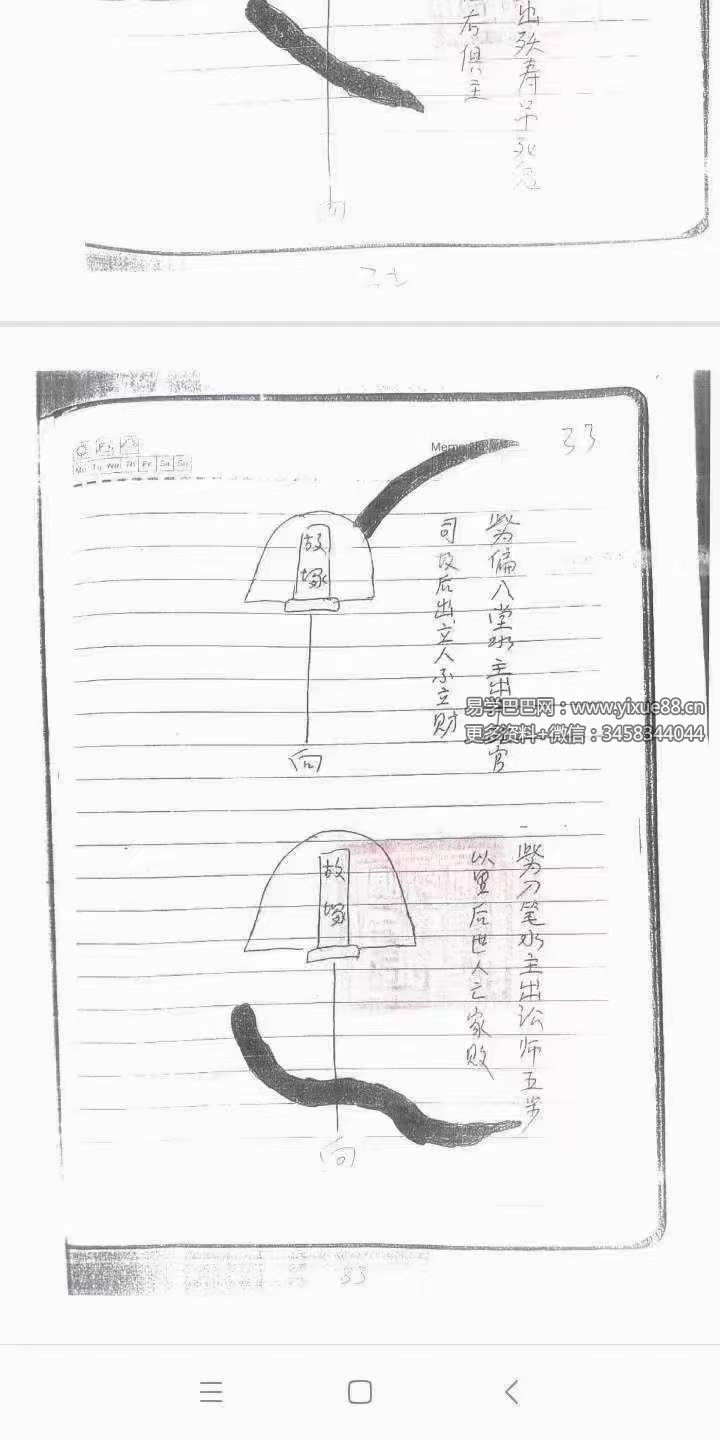 出
寿
死
后俱主
向
33
Memo
Mo Tu Wed Th Fr Sa Su
此为偏入堂水主出
官
司 后出立人不立财
故
塚
向
易学巴巴网：www.yixue88.cn
更多资料+微信：3458344044
此为刀笔水主出讼师五步
以里后世人亡家败
故
塚
向
33